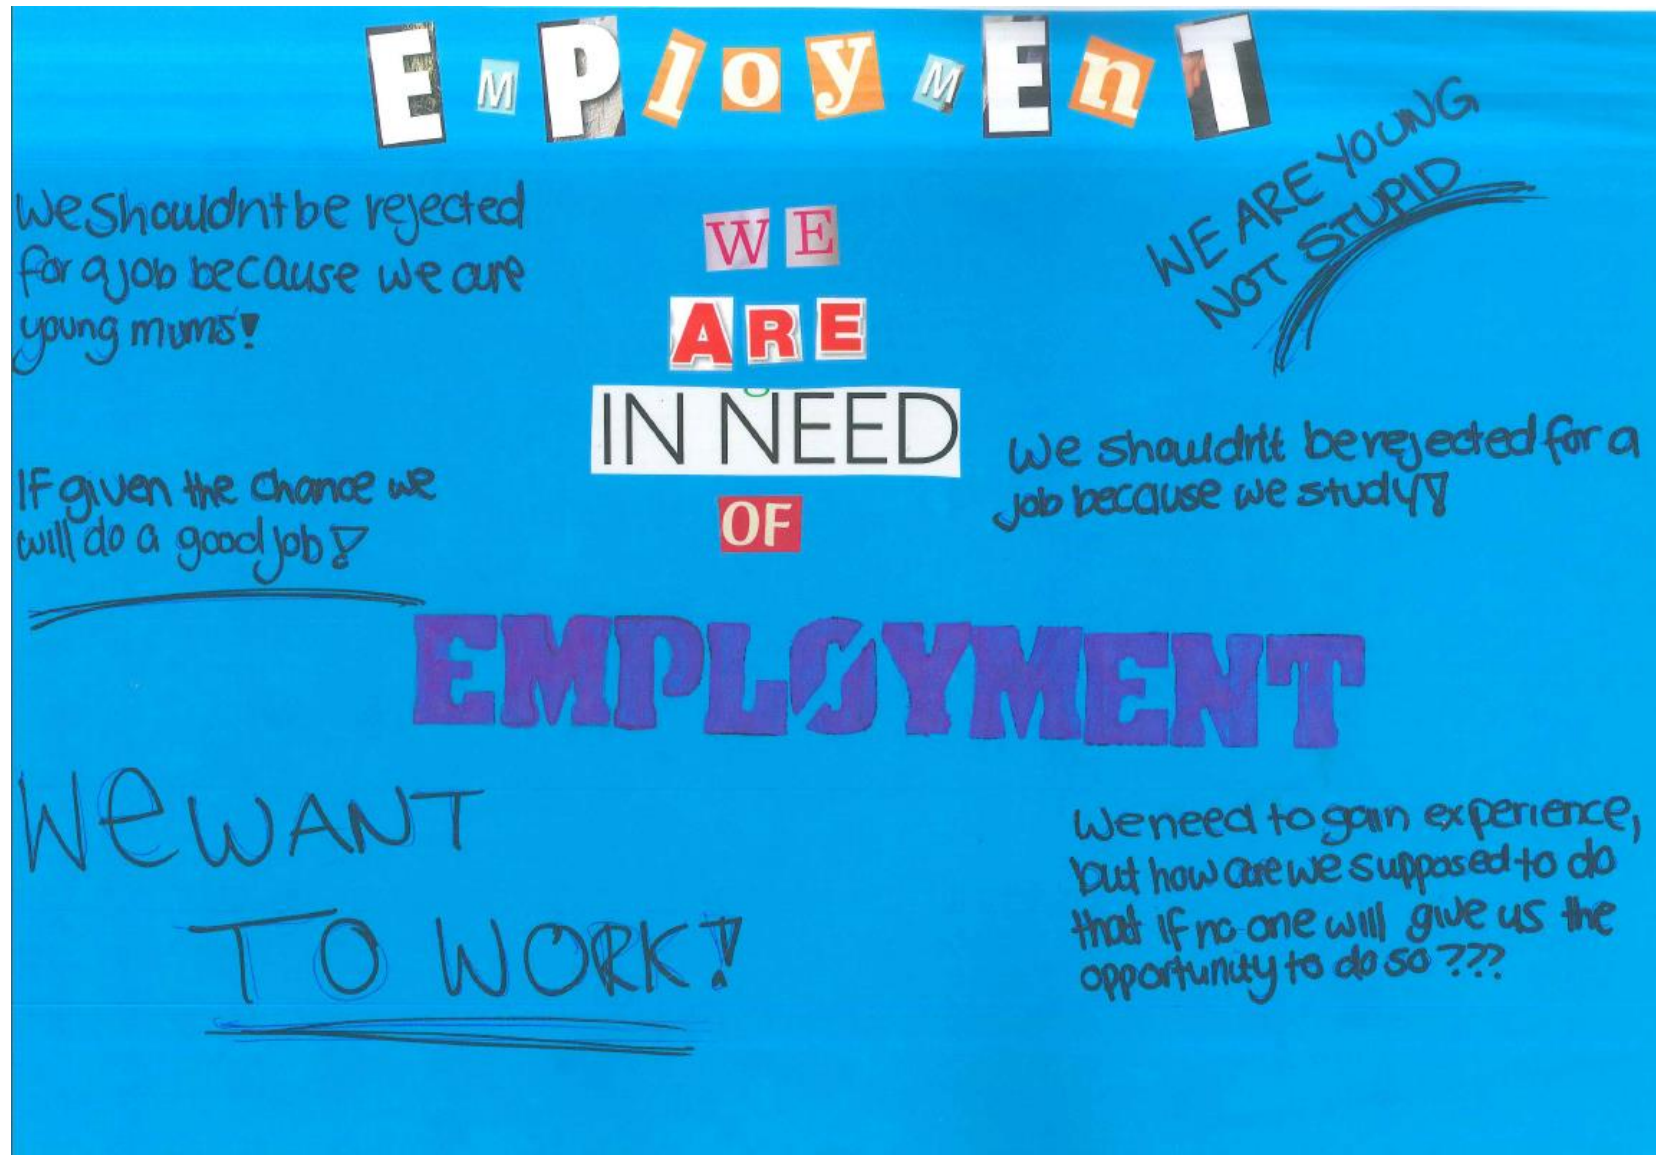 EMPloyMEnT
WE ARE YOUNG
NOT STUPID
We shouldnt be rejected
for a job because we are
young mums!
WE
ARE
IN NEED
OF
We shouldn't be rejected for a
job because we study!
If given the chance we
will do a good job!
EMPLOYMENT
We WANT
TO WORK!
We need to gain experience,
but how are we supposed to do
that if no one will give us the
opportunity to do so ???